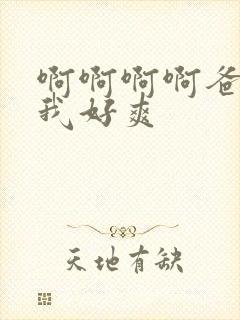 啊啊啊啊爸
我好爽
天地有缺